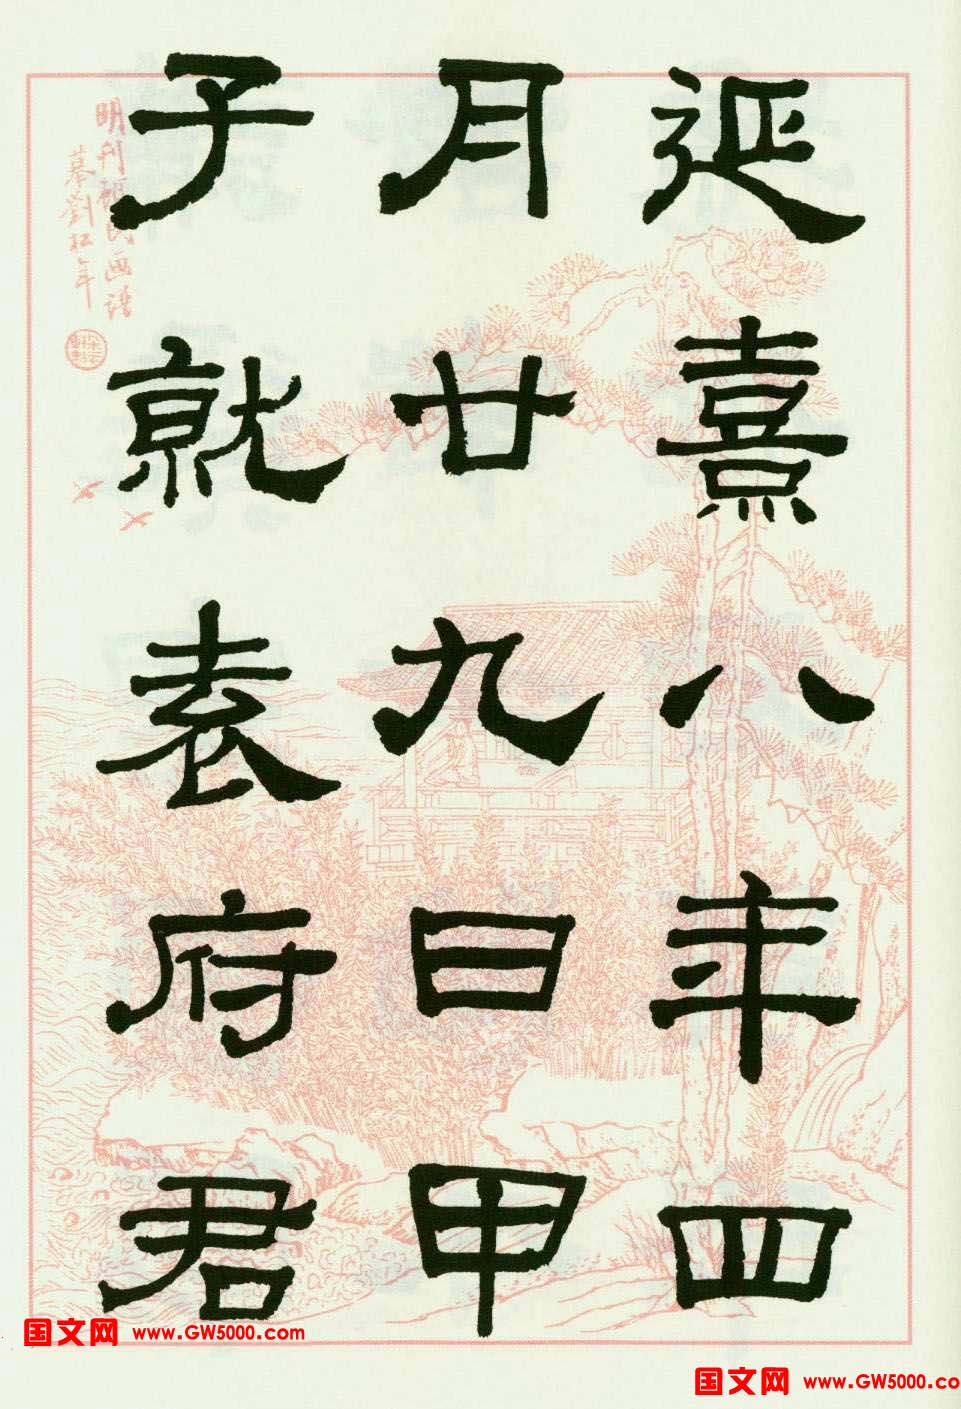 延熹八年四
月廿九日甲
子就袁府君
明刊氏画谱
摹劉松年
国文网 www.GW5000.com
国文网 www.GW5000.co